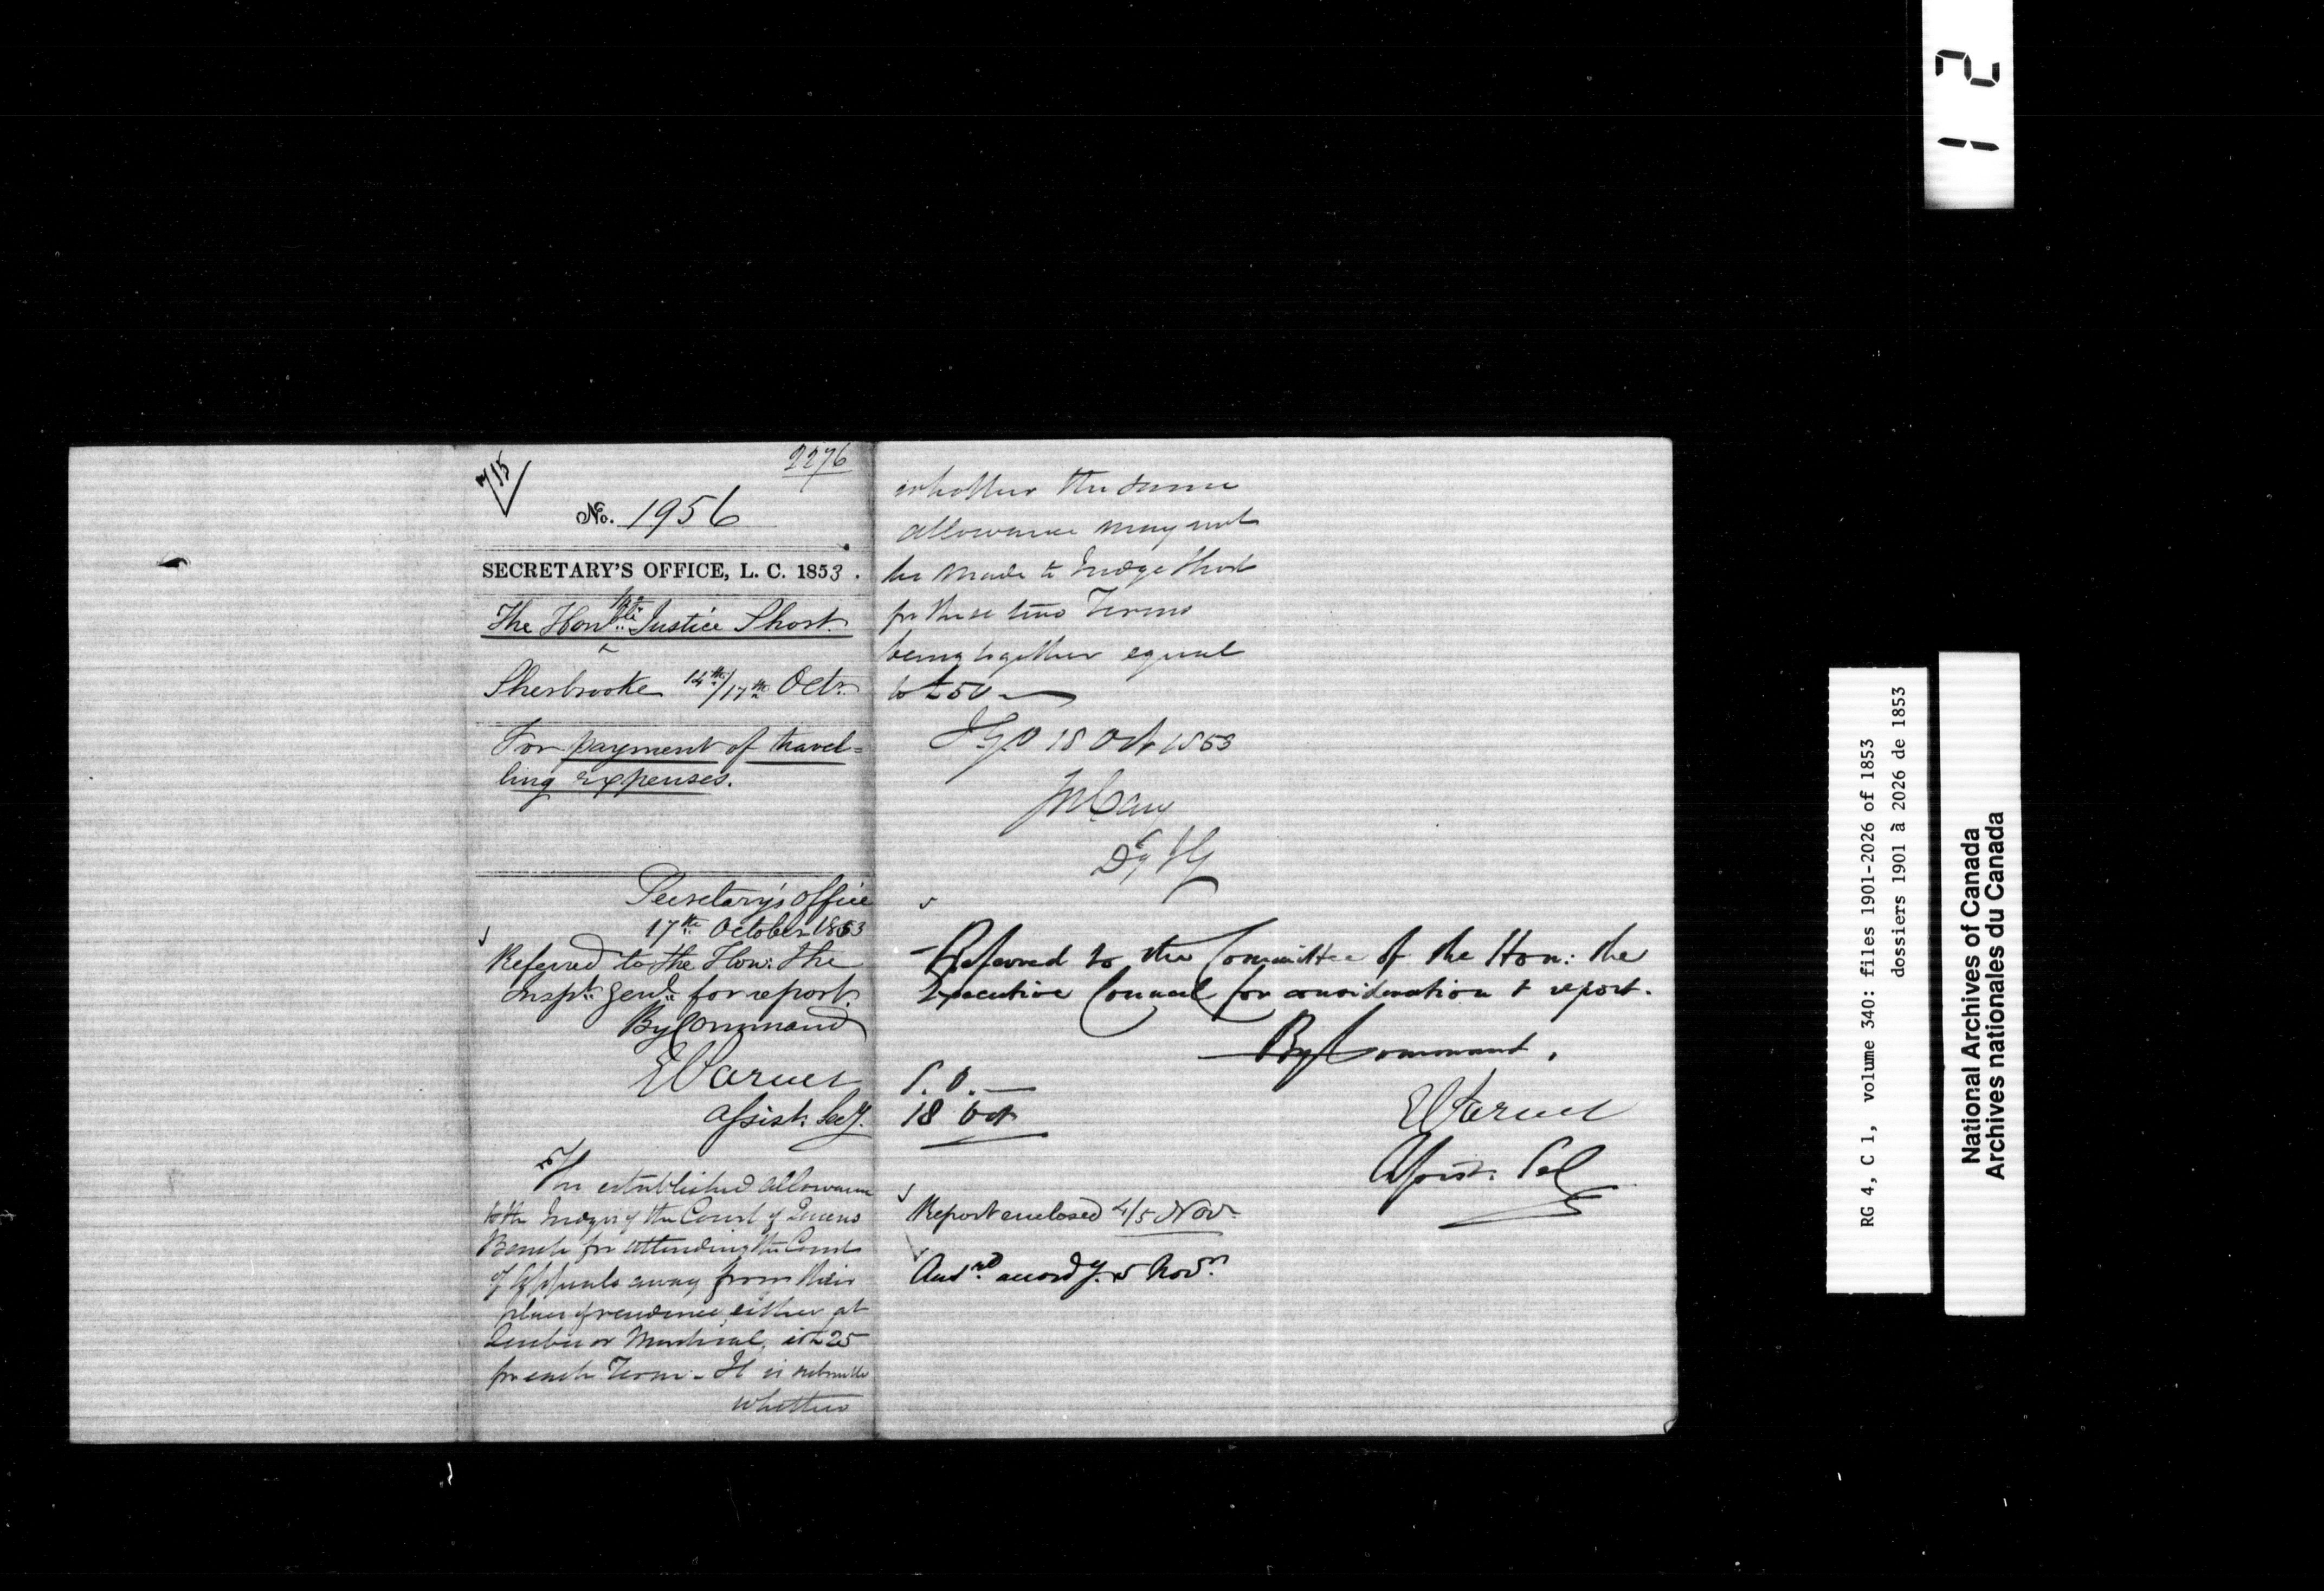 2276
7/15
No. 1956
SECRETARY'S OFFICE, L. C. 1853.
The Honble Mr Justice Short.
Sherbrooke 14th/17th Octr.
For payment of travel=
ling expenses.
Secretary's office
17th October 1853
Referred to the Hon: the
Inspr. Genl. for report.
By Command
E Parent
Assist. Secy.
The established allowance
to the Judges of the Court of Queens
Bench for attending the Court
of Appeals away from their
place of residence, either at
Quebec or Montreal, is £25
for each Term. - It is submitted
whether
whether the same
allowance may not
be made to Judge Short
for these two Terms
being together equal
to £50 —
I G O 18 Oct 1853
Jos Cary
Dy I G
Referred to the Committee of the Hon: the
Executive Council for consideration & report.
By Command,
S. O. —
18 Oct
E Parent
Assist. Sec
Report enclosed 4/5 Novr.
Ansrd accordy. 5 Novr.
1 2
RG 4, C 1, volume 340: files 1901-2026 of 1853
dossiers 1901 à 2026 de 1853
National Archives of Canada
Archives nationales du Canada